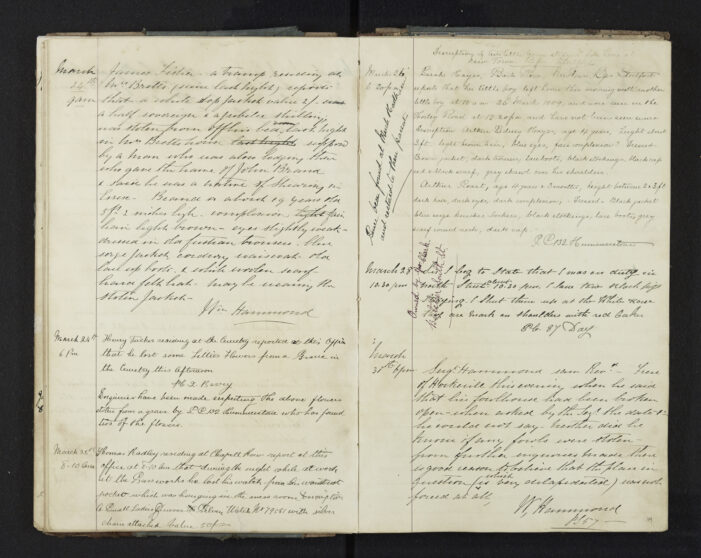 March
24th
James Fisher a tramp residing at
Mrs Bretts since last night, reports
that a white top jacket value 2/-
a half sovereign & a public shilling
was stolen from off his bed, last night
in Mrs Bretts house last night
by a man who was also lodging there
who gave the name of John Brand
& said he was a native of
Brand is about 19 years old
5ft 2 inches high complexion light fair
hair light brown - eyes slightly weak -
dressed in old fustian trousers, blue
serge jacket, corduroy waistcoat old
lace up boots, & white woolen scarf
hard felt hat. may be wearing the
stolen jacket -
Wm Hammond
March 24th
6 Pm
Henry Tucker residing at the Cemetry reported at this Office
that he lost some Lillies Flowers from a Grave in
the Cemetry this Afternoon
Enquiries have been made respecting the above flowers
stolen from a grave by P.C. 132 Hummerstone who has found
two of the flowers
March 25th
8-10 am
Thomas Radley residing at Chapel Row report at this
office at 8-10 am that during the night while at work
at the Ironworks he lost his watch from his waistcoat
pocket which was hanging in the mess room Description
A Small Ladies Silver Watch No 79051 with silver
chain attached Value 50/-
Description of two little boys
March 26
2.20 pm
Buck Hayes, Back Row,
report that her little boy left home this morning with another
little boy at 10 am 26 March 1909, and was seen in the
Road at 12.20 pm and have not been seen since
Description Arthur Sidney Hayes, age 4 years, height about
3ft, light brown hair, blue eyes, fair complexion. Dressed
Brown jacket, dark trousers, lace boots, black stockings, black cap
and black scarf, grey shawl over his shoulders.
Arthur age 4 years & 2 months, height between 2 & 3 ft
dark hair, dark eyes, dark complexion. Dressed - Black jacket
blue serge knickers, black stockings, lace boots, grey
scarf round neck, dark cap.
P.C. 132 Hummerstone
Since been found at
and restored to their parents
March 28
10.30 pm
Sir I beg to State that I was on duty in
South Street about 10.30 pm, I saw two Black pigs
straying I Shut them up at the White Horse
they are mark on shoulders with red Ochre
P.C. 97 Day
Owned by Mr Clark
South St
March
30th pm
Sergt Hammond saw Revd
of Hockerill this evening when he said
that his fowlhouse had been broken
open - when asked by the Sergt the date
he could not say. neither did he
know if any fowls were stolen -
from further enquiries made there
is good reason to believe that the place in
question (which is very delapidated) was not
forced at all,
W. Hammond